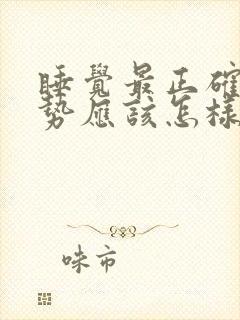 睡覺最正確
勢應該怎樣
味市